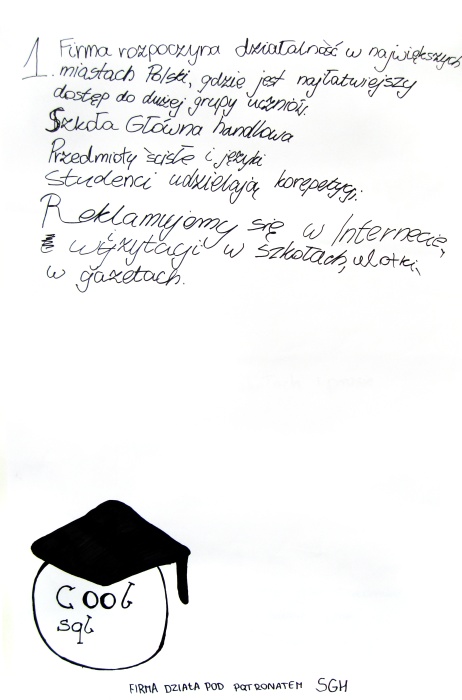 1. Firma rozpoczyna działalność w największych
miastach Polski, gdzie jest najłatwiejszy
dostęp do dużej grupy uczniów.
Szkoła Główna handlowa
Przedmioty ścisłe i języki
Studenci udzielają korepetycji
Reklamujemy się w Internecie,
wizytacji w szkołach, ulotki,
w gazetach.
Cool
sql
FIRMA DZIAŁA POD PATRONATEM SGH